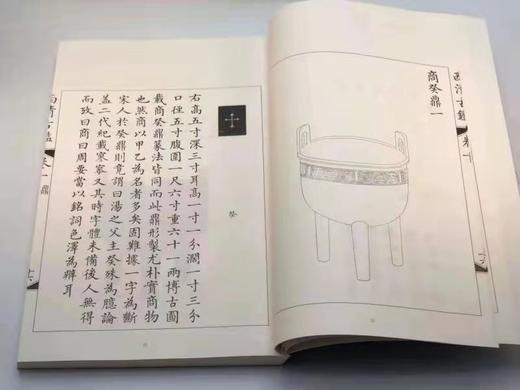 西清古鑑 卷一
商癸鼎一
癸
右高五寸深三寸耳高一寸一分濶一寸三分
口徑五寸腹圍一尺六寸重六十一兩博古圖
載商癸鼎篆法皆同而此鼎形製尤朴實商物
也然商以甲乙為名者多矣固難據一字為斷
宋人於癸鼎則竟謂曰湯之父主癸殊為臆論
盖二代紀載寥寥又其時字體未備後人無得
而攷曰商曰周要當以銘詞色澤為辨耳
西清古鑑 卷一 鼎